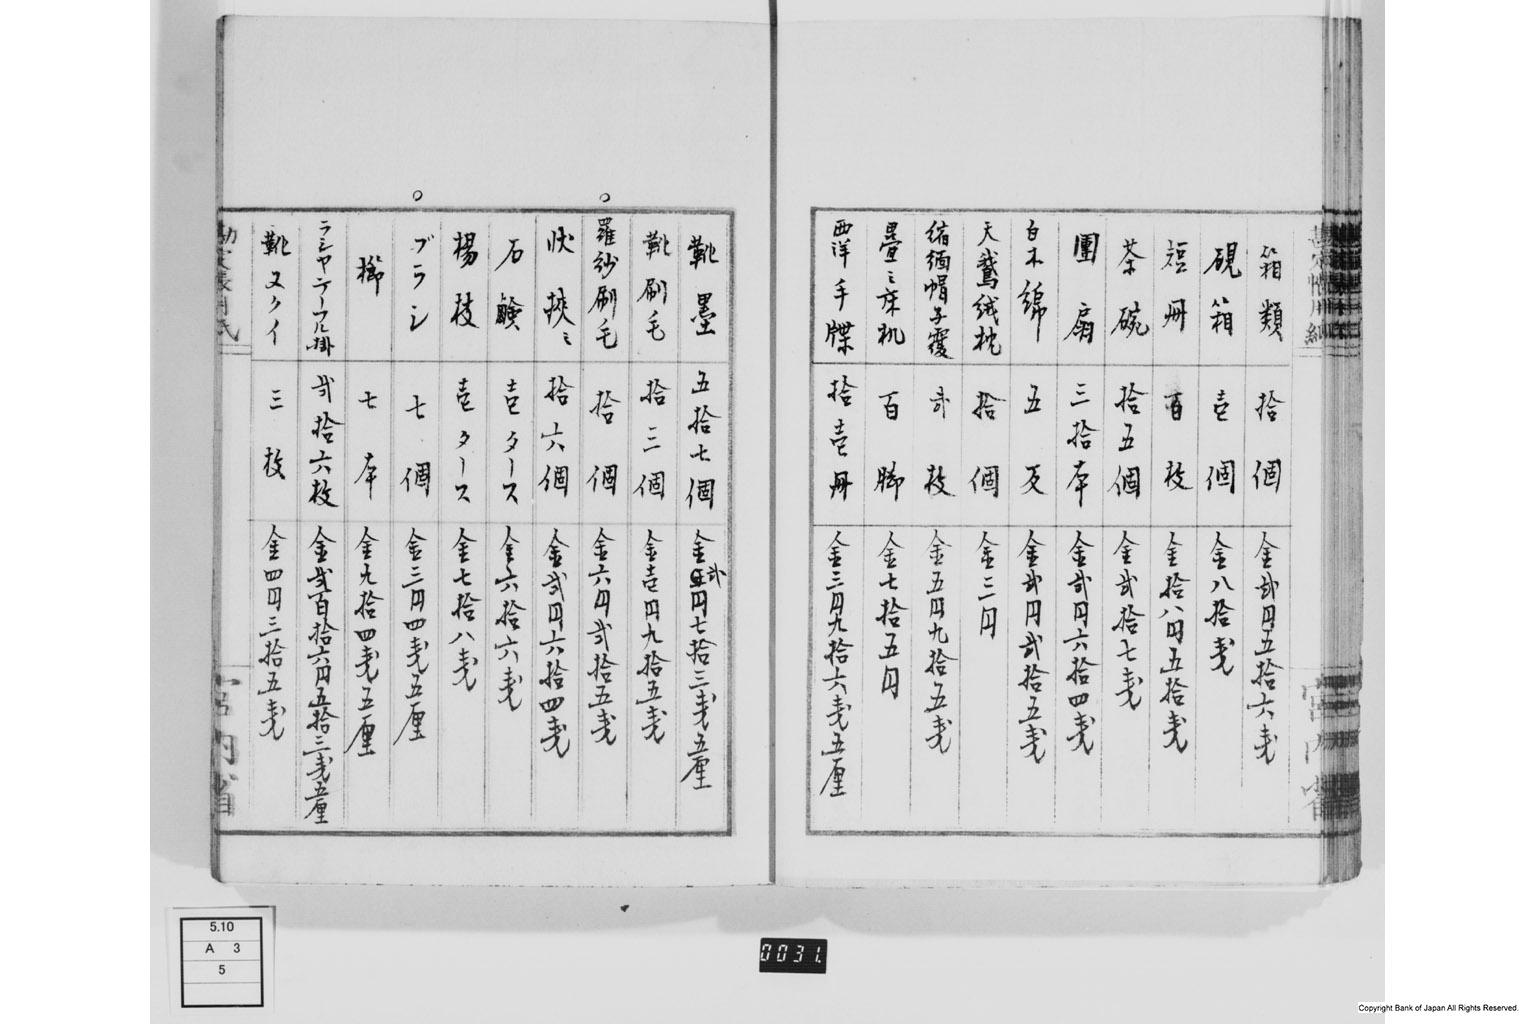 箱類 拾個 金弐円五拾六銭
硯箱 壱個 金八拾銭
短冊 百枚 金拾八円五拾銭
茶碗 拾五個 金弐拾七銭
團扇 三拾本 金弐円六拾四銭
白木綿 五反 金弐円弐拾五銭
天鵞絨枕 拾個 金二円
縮緬帽子覆 弐枚 金五円九拾五銭
畳ミ床机 百脚 金七拾五円
西洋手牒 拾壱冊 金三円九拾六銭五厘
宮内省
靴墨 五拾七個 金弐円七拾三銭五厘
靴刷毛 拾三個 金壱円九拾五銭
羅紗刷毛 拾個 金六円弐拾五銭
状挾ミ 拾六個 金弐円六拾四銭
石鹸 壱タース 金六拾六銭
楊枝 壱タース 金七拾八銭
ブラシ 七個 金三円四銭五厘
櫛 七本 金九拾四銭五厘
ラシヤテーフル掛 弐拾六枚 金弐百拾六円五拾三銭五厘
靴ヌクイ 三枚 金四円三拾五銭
宮内省
5.10
A 3
5
0031.
Copyright Bank of Japan All Rights Reserved.